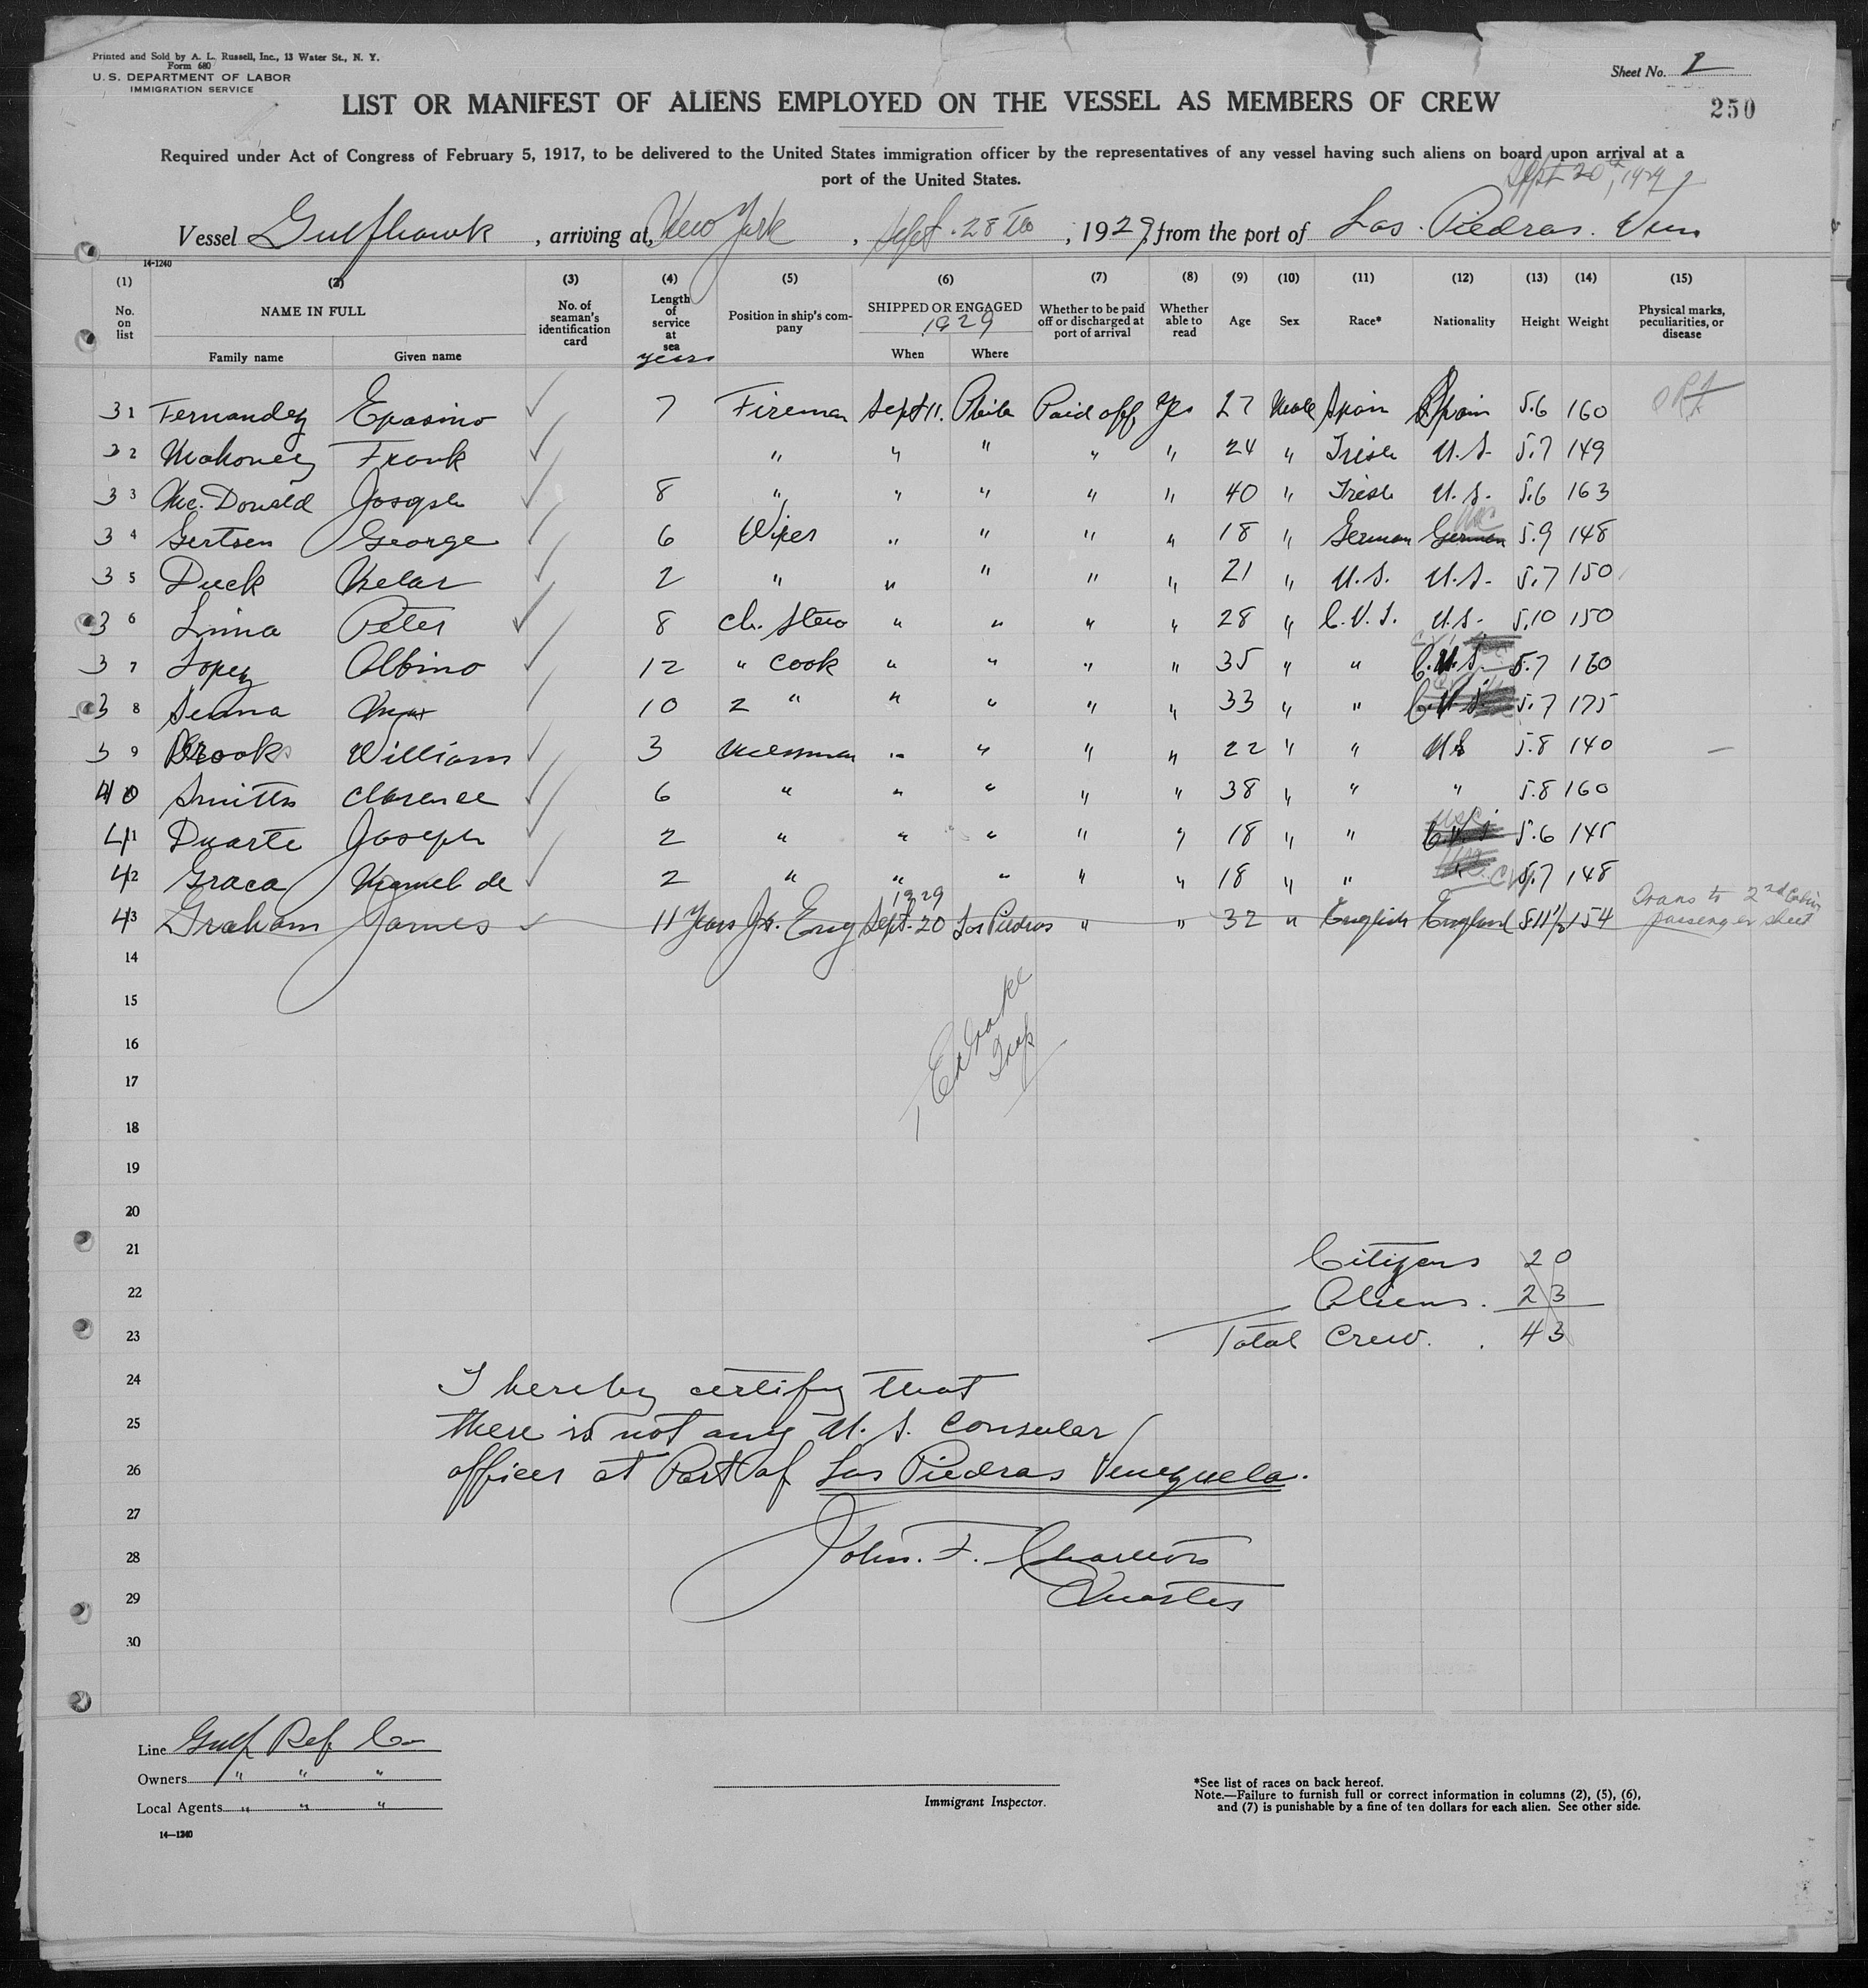 Printed and Sold by A. L. Russell, Inc., 13 Water St., N. Y.
Form 680
U. S. DEPARTMENT OF LABOR
IMMIGRATION SERVICE
Sheet No. 2
250
LIST OR MANIFEST OF ALIENS EMPLOYED ON THE VESSEL AS MEMBERS OF CREW
Required under Act of Congress of February 5, 1917, to be delivered to the United States immigration officer by the representatives of any vessel having such aliens on board upon arrival at a
port of the United States.
Sept 20th, 1929
Vessel Gulfhawk, arriving at New York, Sept. 28th, 1929, from the port of Las Piedras. Ven
14-1240
(1) (2) (3) (4) (5) (6) (7) (8) (9) (10) (11) (12) (13) (14) (15)
No. on list NAME IN FULL No. of seaman's identification card Length of service at sea years Position in ship's company SHIPPED OR ENGAGED 1929 Whether to be paid off or discharged at port of arrival Whether able to read Age Sex Race* Nationality Height Weight Physical marks, peculiarities, or disease
Family name Given name When Where
31 Fernandez Epasino 7 Fireman Sept 11. Phila Paid off Yes 27 Male Spain Spain 5.6 160
32 Mahoney Frank " " " " " 24 " Irish U.S. 5.7 149
33 Mc. Donald Joseph 8 " " " " " 40 " Irish U.S. 5.6 163
34 Gertsen George 6 Wiper " " " " 18 " German German USC 5.9 148
35 Duck 2 " " " " " 21 " U.S. U.S. 5.7 150
36 Lima Peter 8 Ch. Stew " " " " 28 " C.V.I. U.S. 5.10 150
37 Lopez Albino 12 " Cook " " " " 35 " " 5.7 160
38 Senna 10 2 " " " " " 33 " " 5.7 175
39 Brooks William 3 Messman " " " " 22 " " US 5.8 140 —
40 Smitth Clarence 6 " " " " " 38 " " " 5.8 160
41 Duarte Joseph 2 " " " " " 18 " " USC 5.6 145
42 Graca Manuel de 2 " " " " " 18 " " 5.7 148
43 Graham James 11 Years Jr. Eng 1929 Sept. 20 Las Piedras " " 32 " English England 5 11 1/2 154 Trans to 2nd Cabin
passenger sheet
14
15
16
17
18
19
20
21 Citizens 20
22 Aliens. 23
23 Total Crew. 43
24 I hereby certify that
25 there is not any U. S. Consular
26 officer at Port of Las Piedras Venezuela.
27
28 John. F.
29 Master
30
Line Gulf Ref. Co
Owners " " "
Local Agents " " "
14—1240
Immigrant Inspector.
*See list of races on back hereof.
Note.—Failure to furnish full or correct information in columns (2), (5), (6),
and (7) is punishable by a fine of ten dollars for each alien. See other side.